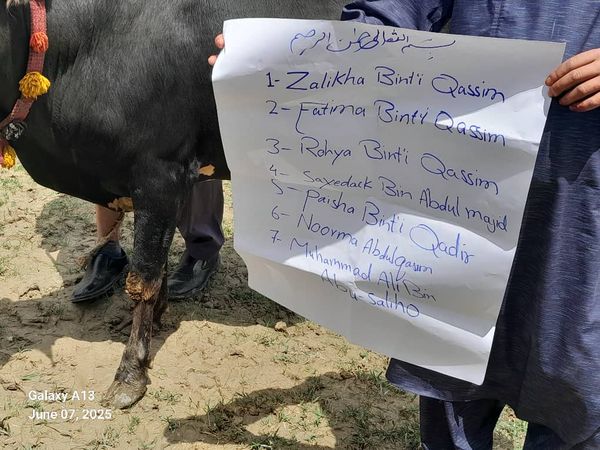 بسم الله الرحمن الرحیم
1- Zalikha Binti Qassim
2- Fatima Binti Qassim
3- Rohya Binti Qassim
4- Saxedack Bin Abdul majid
5- Paisha Binti Qadir
6- Noorma Abdulqasim
7- Muhammad Ali Bin
Abu-Saliho
Galaxy A13
June 07, 2025